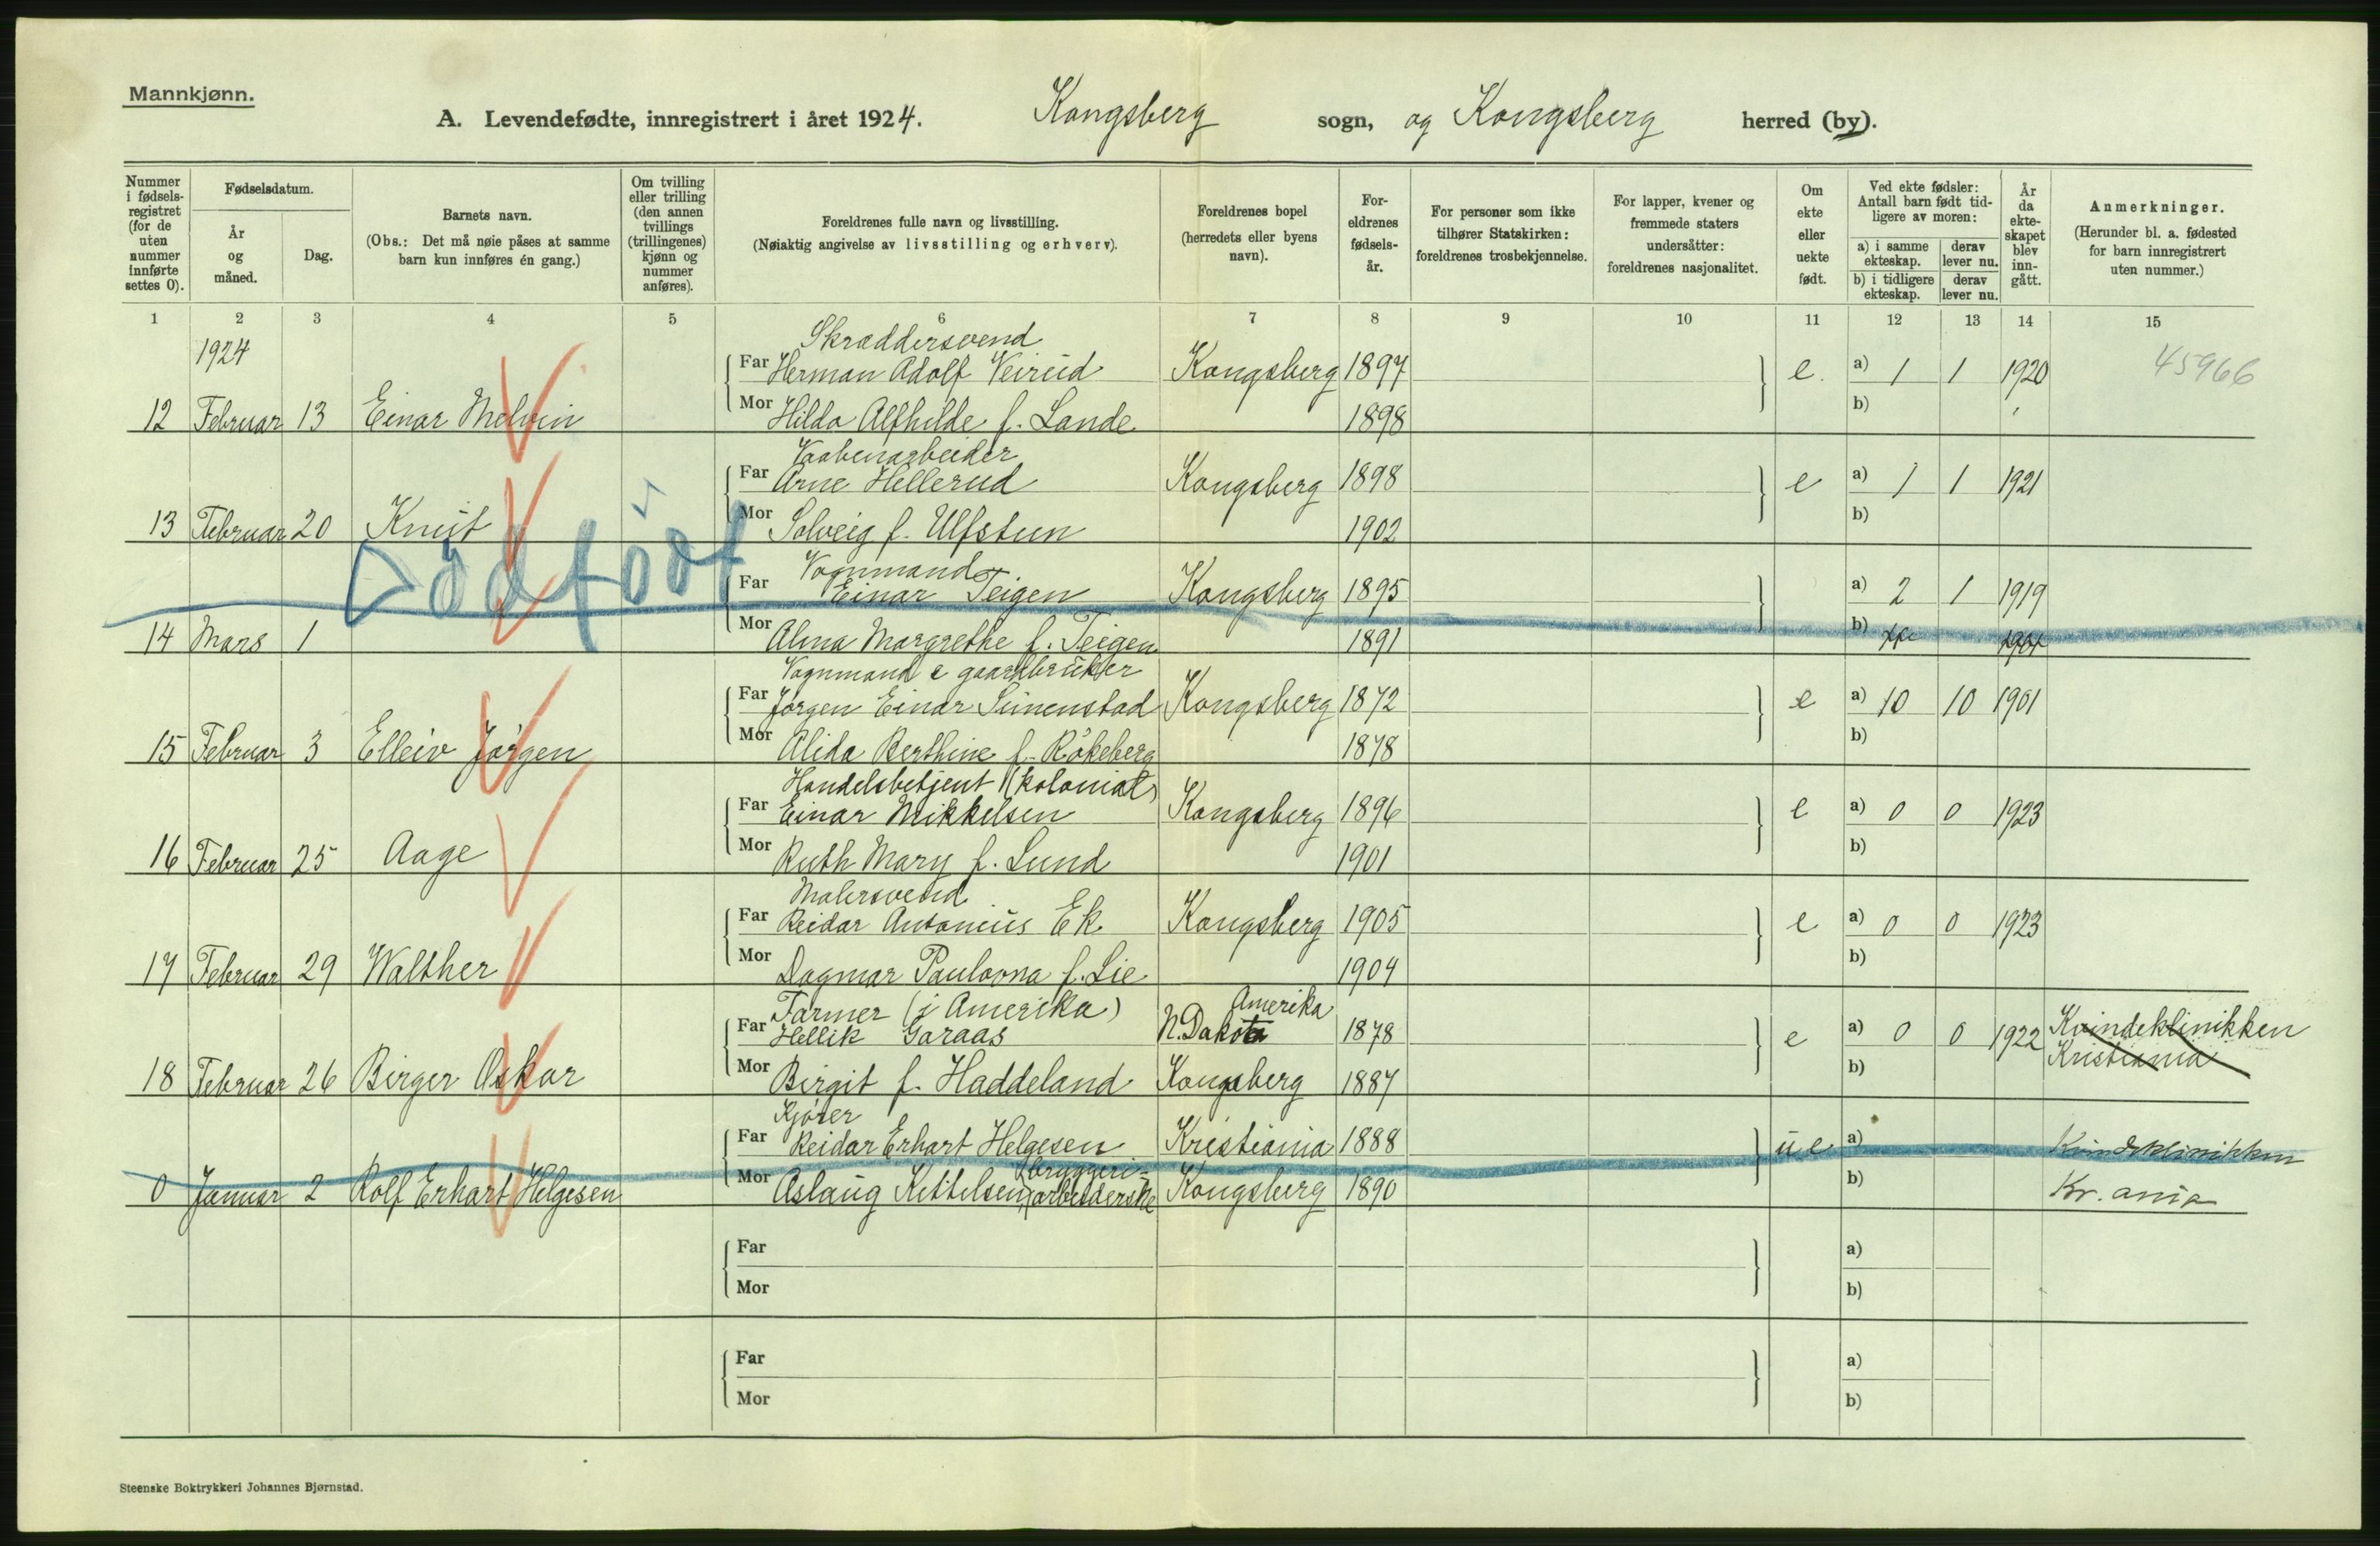 Mannkjønn.
A. Levendefødte, innregistrert i året 1924. Kongsberg sogn, og Kongsberg herred (by).
Nummer i fødselsregistret (for de uten nummer innførte settes 0).
Fødselsdatum.
År og måned.
Dag.
Barnets navn.
(Obs.: Det må nøie påses at samme barn kun innføres én gang.)
Om tvilling eller trilling (den annen tvillings (trillingenes) kjønn og nummer anføres).
Foreldrenes fulle navn og livsstilling.
(Nøiaktig angivelse av livsstilling og erhverv).
Foreldrenes bopel (herredets eller byens navn).
Foreldrenes fødselsår.
For personer som ikke tilhører Statskirken: foreldrenes trosbekjennelse.
For lapper, kvener og fremmede staters undersåtter: foreldrenes nasjonalitet.
Om ekte eller uekte født.
Ved ekte fødsler: Antall barn født tidligere av moren:
a) i samme ekteskap. derav lever nu.
b) i tidligere ekteskap. derav lever nu.
År da ekteskapet blev inngått.
Anmerkninger.
(Herunder bl. a. fødested for barn innregistrert uten nummer.)
1 2 3 4 5 6 7 8 9 10 11 12 13 14 15
1924
Skræddersvend
Far Herman Adolf Veirud Kongsberg 1897 e. a) 1 1 1920 45966
12 Februar 13 Einar Melvin Mor Hilda Alfhilde f. Lande 1898 b)
Vaabenarbeider
Far Arne Hellerud Kongsberg 1898 e a) 1 1 1921
13 Februar 20 Knut Mor Solveig f. Ulfstun 1902 b)
Dødfödt
Vognmand
Far Einar Teigen Kongsberg 1895 a) 2 1 1919
14 Mars 1 Mor Alma Margrethe f. Teigen 1891 b) 1901
Vognmand & gaardbruker
Far Jørgen Einar Simenstad Kongsberg 1872 e a) 10 10 1901
15 Februar 3 Elleiv Jørgen Mor Alida Berthine f. Rökeberg 1878 b)
Handelsbetjent (kolonial)
Far Einar Mikkelsen Kongsberg 1896 e a) 0 0 1923
16 Februar 25 Aage Mor Ruth Mary f. Lund 1901 b)
Malersvend
Far Reidar Antonius Ek Kongsberg 1905 e a) 0 0 1923
17 Februar 29 Walther Mor Dagmar Paulovna f. Lie 1904 b)
Farmer (i Amerika) Amerika
Far Hellik Garaas N. Dakota 1878 e a) 0 0 1922 Kvindeklinikken
Kristiania
18 Februar 26 Birger Oskar Mor Birgit f. Haddeland Kongsberg 1887 b)
Kjører
Far Reidar Erhart Helgesen Kristiania 1888 u e a) Kvindeklinikken
0 Januar 2 Rolf Erhart Helgesen Mor Aslaug Kittelsen, (bryggeri-arbeiderske Kongsberg 1890 b) Kr. ania
Far a)
Mor b)
Far a)
Mor b)
Steenske Boktrykkeri Johannes Bjørnstad.